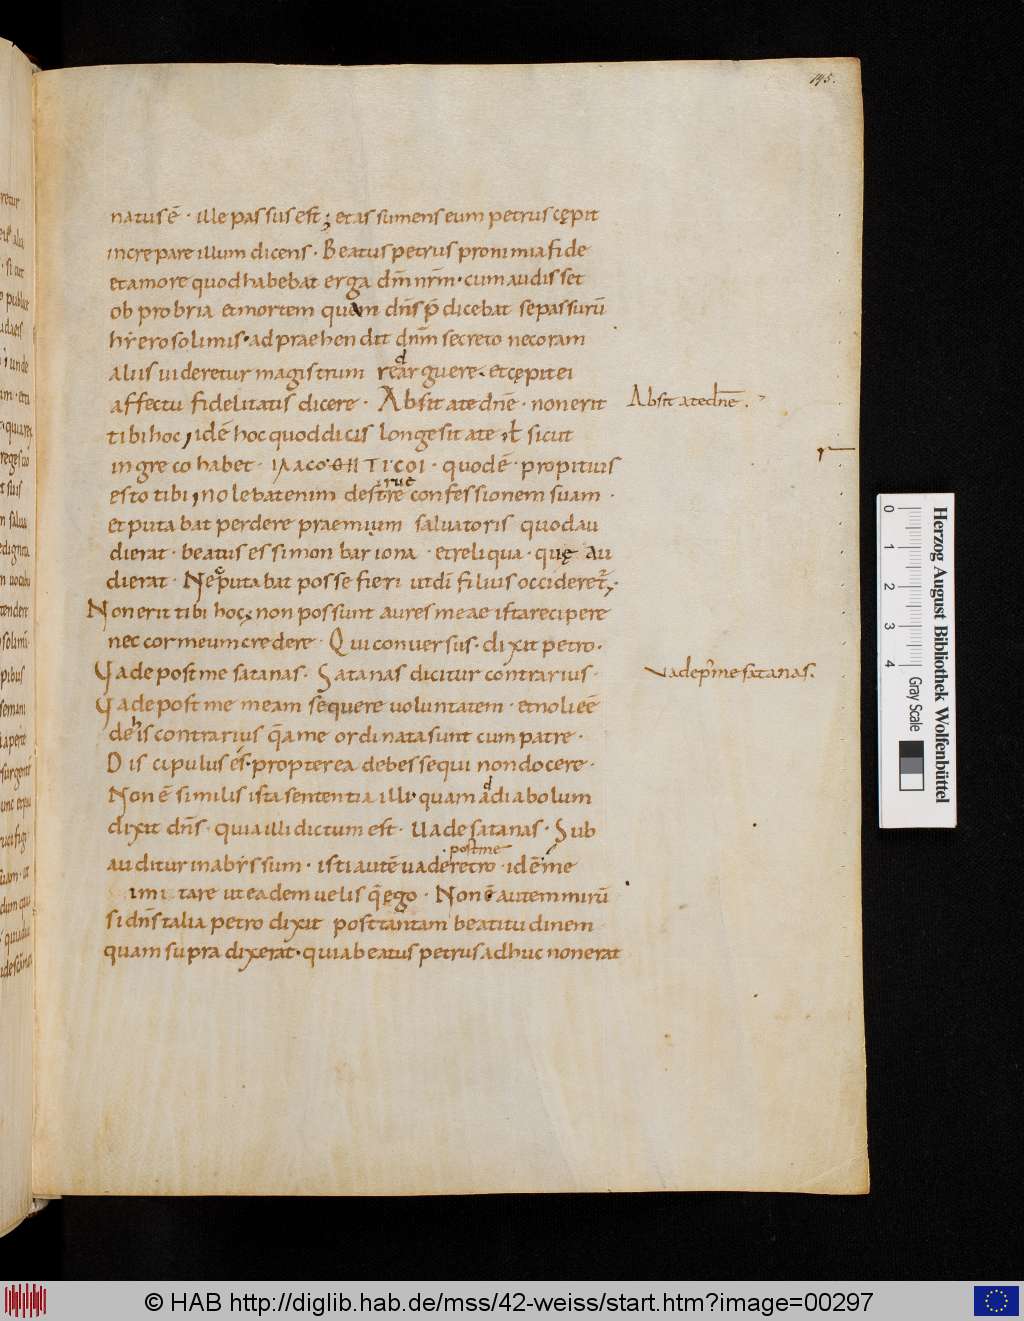 145.
natus ē · ille passus est; et assumens eum petrus cępit
increpare illum dicens · Beatus petrus pro nimia fide
et amore quod habebat erga dn̄m nr̄m · cum audisset
obprobria et mortem quem dn̄s p̄dicebat se passurū
hyerosolimis · adpraehendit dn̄m secreto ne coram
aliis uideretur magistrum redarguere · et cępit ei
affectu fidelitatis dicere · Absit a te dn̄e · non erit
Absit a te dn̄e .
tibi hoc, idē hoc quod dicis longe sit a te, ł sicut
in greco habet · ΙΛΑϹΟ·ΘΗΤΙ·ϹΟΙ · quod ē · propitius
esto tibi, nolebat enim destruere confessionem suam ·
et putabat perdere praemium saluatoris quod au
dierat · beatus es simon bariona · et reliqua · quę au
dierat · Neq; putabat posse fieri ut di filius occideret̄;
Non erit tibi hoc; non possunt aures meae ista recipere
nec cor meum credere · Qui conuersus · dixit petro ·
Uade post me satanas · Satanas dicitur contrarius ·
Uade p̄ me satanas.
Uade post me meam sequere uoluntatem · et noli eē
de his contrarius q̄ a me ordinata sunt cum patre ·
Discipulus és · propterea debes sequi non docere ·
Non ē similis ista sententia illi · quam ad diabolum
dixit dn̄s · quia illi dictum est · Uade satanas · Sub
auditur in abyssum · isti autē uade retro post me · id ē · me
imitare ut eadem uelis q̄ ego · Non ē autem mirū
si dn̄s talia petro dixit post tantam beatitudinem
quam supra dixerat · quia beatus petrus adhuc non erat
Herzog August Bibliothek Wolfenbüttel
0 1 2 3 4 Gray Scale
© HAB http://diglib.hab.de/mss/42-weiss/start.htm?image=00297